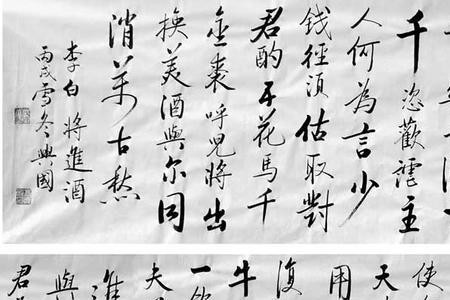 千恣歡謔主
人何為言少
錢徑須估取對
君酌五花馬千
金裘呼兒將出
換美酒與爾同
消萬古愁
李白 將進酒
丙戌雪冬興國
使
天
用
復
牛
一飲
夫
進
與
君